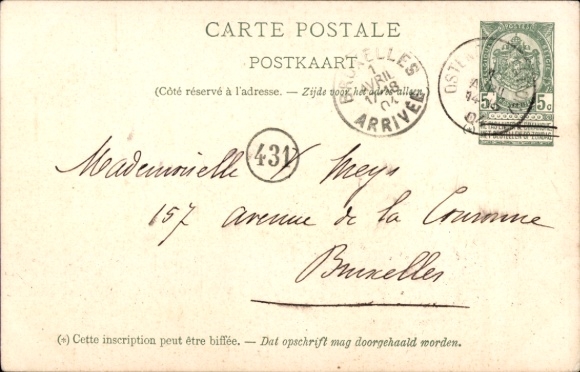 CARTE POSTALE
POSTKAART
(Côté réservé à l'adresse. — Zijde voor het adres alleen.)
BRUXELLES
1
AVRIL
ARRIVÉE
OSTEN
5c 5c
431
Mademoiselle V Meys
157 avenue de la Couronne
Bruxelles
(*) Cette inscription peut être biffée. — Dat opschrift mag doorgehaald worden.